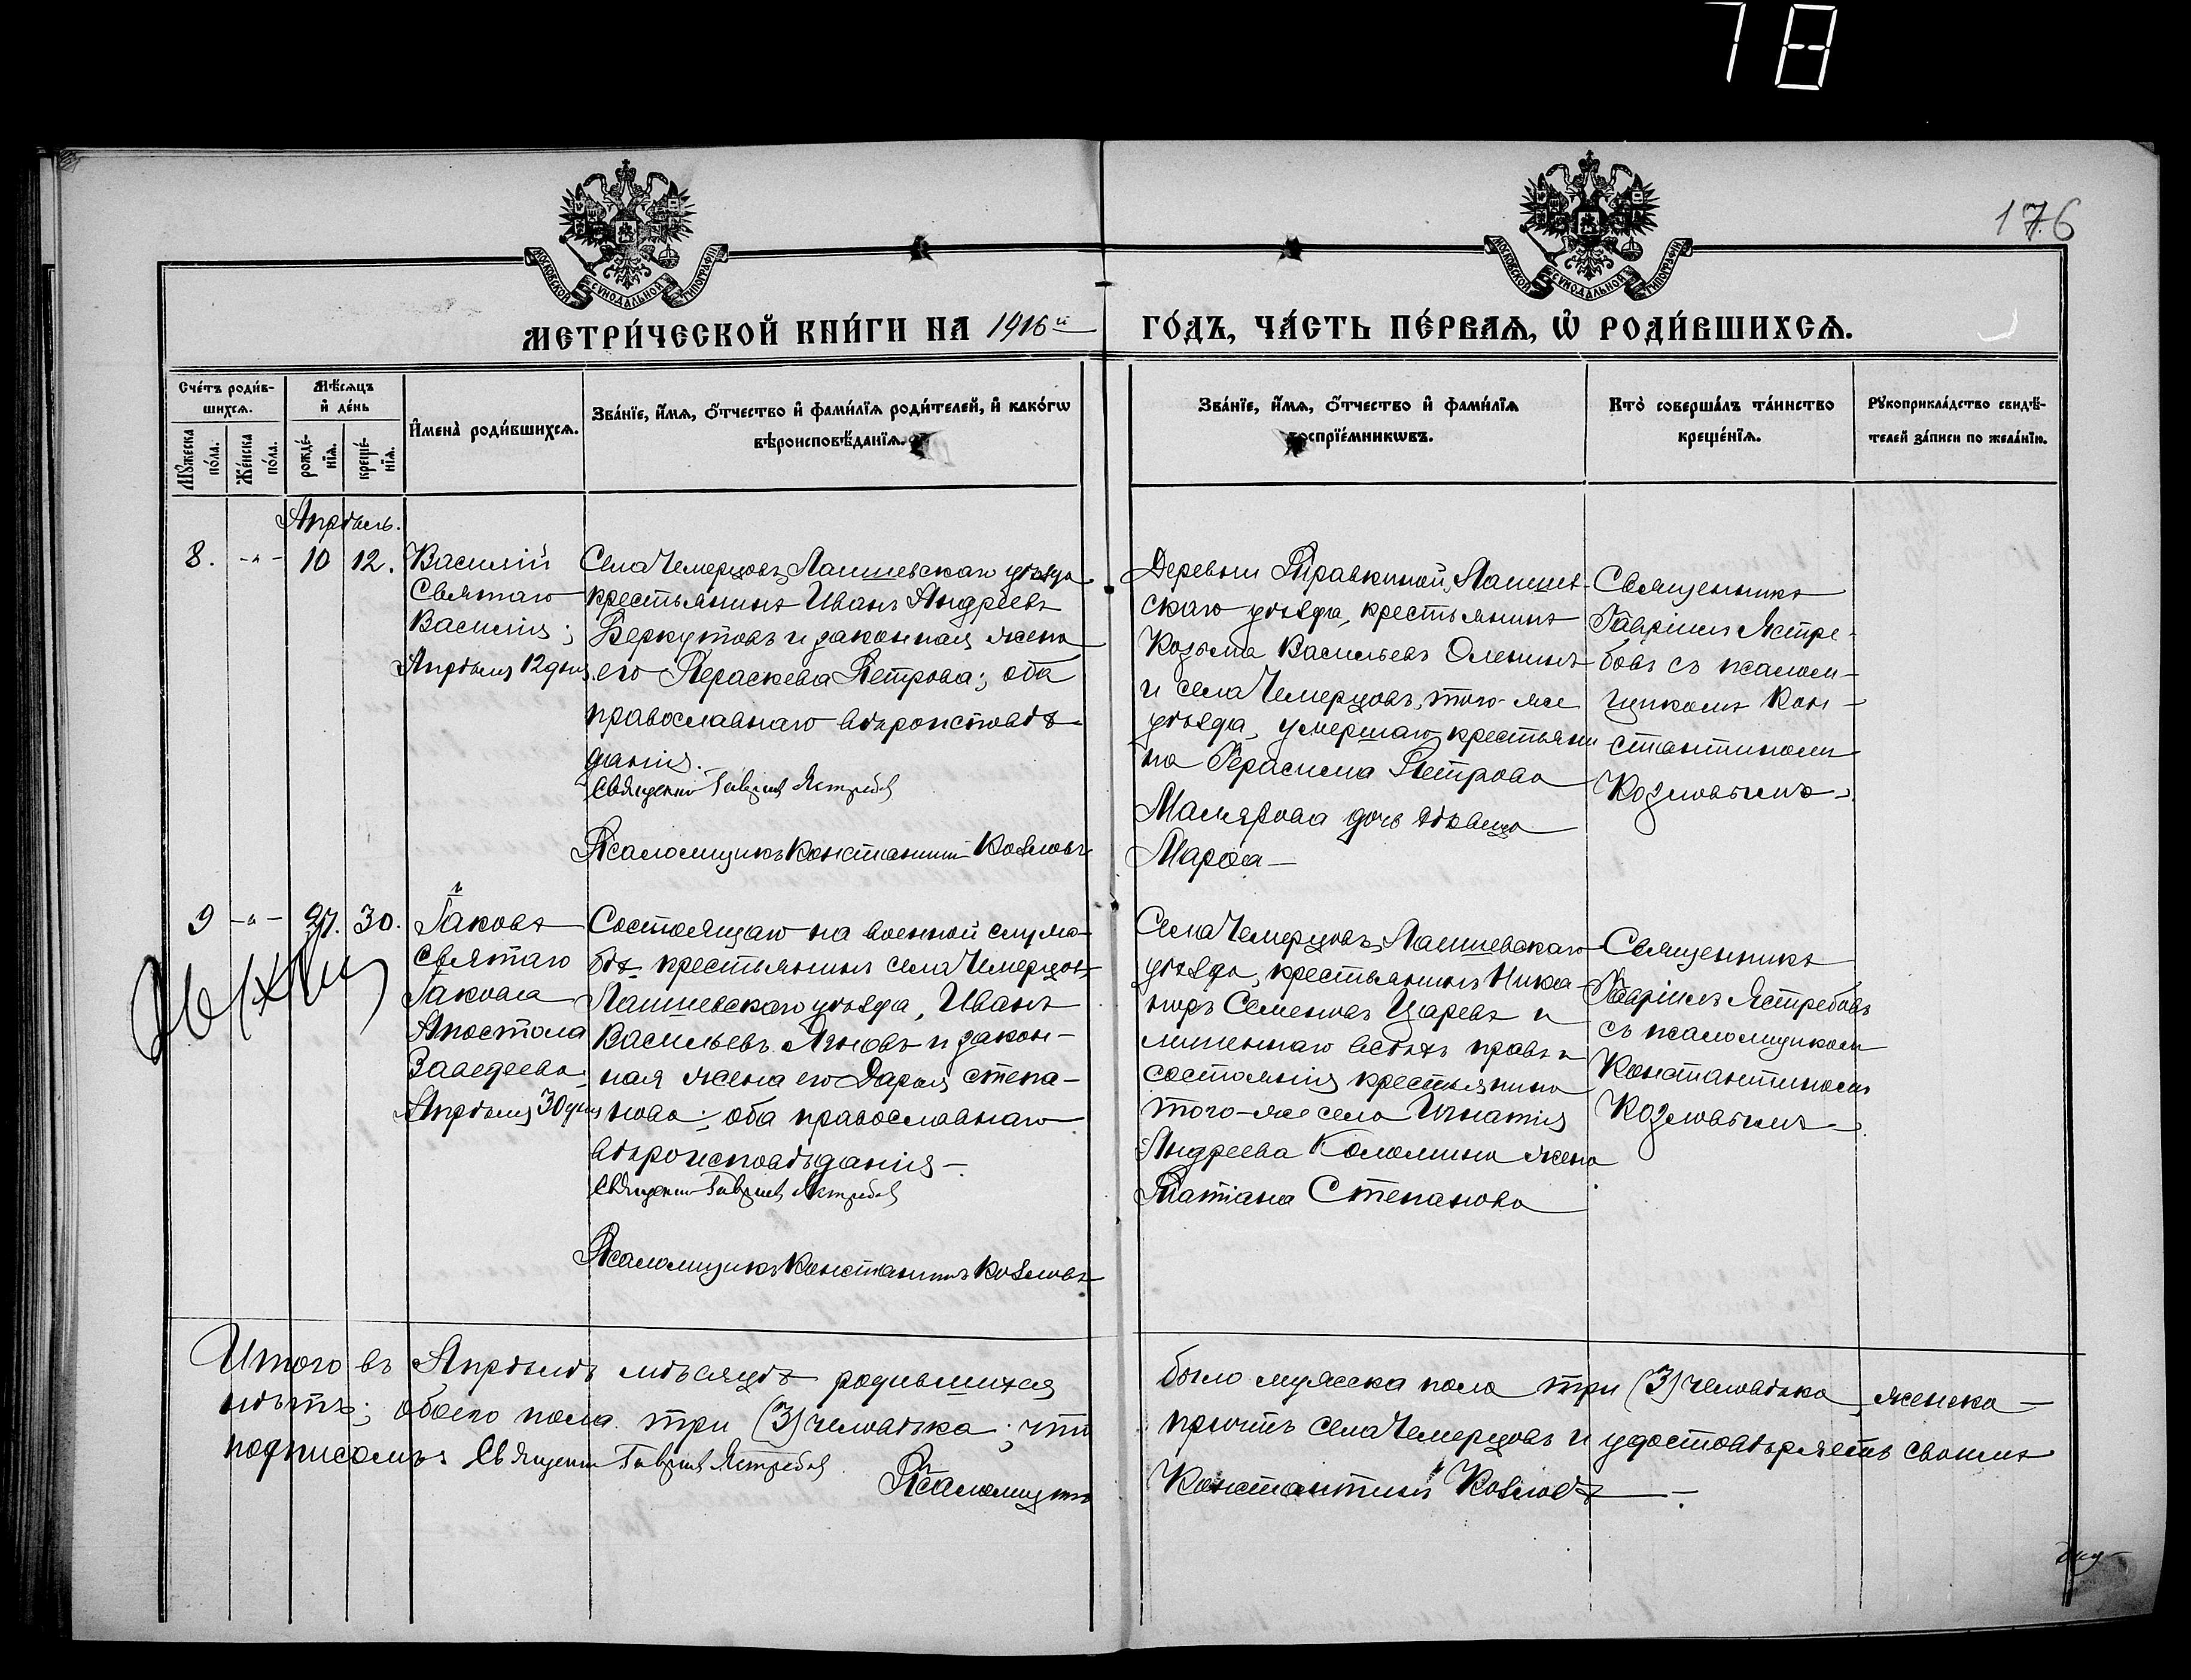 78
176
МОСКОВСКОЙ СѴНОДАЛЬНОЙ ТИПОГРАФІИ
МОСКОВСКОЙ СѴНОДАЛЬНОЙ ТИПОГРАФІИ
МЕТРИ́ЧЕСКОЙ КНИ́ГИ НА 1916й
ГО́ДЪ, ЧА́СТЬ ПЕ́РВАЯ, Ѡ РОДИ́ВШИХСЯ.
Сче́тъ роди́в-
шихся.
Мꙋжеска по́ла.
Же́нска по́ла.
Мѣ́сяцъ
и҆ де́нь
рожде́-
нїя.
креще́-
нїя.
И҆мена̀ роди́вшихся.
Зва́нїе, и҆́мя, ѻ҆́тчество и҆ фами́лїя роди́телей, и҆ како́гѡ
вѣроисповѣ́данїя.
Зва́нїе, и҆́мя, ѻ҆́тчество и҆ фами́лїя
воспрїе́мникѡвъ.
Кто̀ соверша́лъ та́инство
креще́нїя.
Рꙋкоприкла́дство свидѣ́-
телей за́писи по жела́нїю.
Апрѣль.
8. -„- 10 12.
Василій
Святаго
Василія;
Апрѣля 12 дня
Села Чемерцовъ, Лаишевскаго уѣзда
крестьянинъ Иванъ Андреевъ
Беркутовъ и законная жена
его Параскева Петрова; оба
православнаго вѣроисповѣ-
данія.
Священникъ Гавріилъ Ястребовъ
Псаломщикъ Константинъ Козловъ
Деревни Травкиной, Лаишев-
скаго уѣзда, крестьянинъ
Козьма Васильевъ Оленинъ
и села Чемерцовъ, того-же
уѣзда, умершаго крестьяни
на Герасима Петрова
Малярова дочь дѣвица
Марѳа —
Священникъ
Гавріилъ Ястре-
бовъ съ псалом-
щикомъ Кон-
стантиномъ
Козловымъ.
9 -„- 27. 30.
Іаковъ
Святаго
Іакова
Апостола
Заведеева;
Апрѣля 30 дня
Состоящаго на военной служ-
бѣ крестьянинъ села Чемерцовъ
Лаишевскаго уѣзда, Иванъ
Васильевъ Лгновъ и закон-
ная жена его Дарья Степа-
нова; оба православнаго
вѣроисповѣданія —.
Священникъ Гавріилъ Ястребовъ
Псаломщикъ Константинъ Козловъ
Села Чемерцовъ, Лаишевскаго
уѣзда, крестьянинъ Ника-
норъ Семеновъ Царевъ и
лишеннаго всѣхъ правъ и
состоянія крестьянина
того-же села Игнатія
Андреева Коломина жена
Татіана Степанова
Священникъ
Гавріилъ Ястребовъ
съ псаломщикомъ
Константиномъ
Козловымъ.
Итого въ Апрѣлѣ мѣсяцѣ родившихся
было мужеска пола три (3) человѣка, женска —
нѣтъ; обоего пола три (3) человѣка; что
причтъ села Чемерцовъ и удостовѣряетъ своимъ
подписомъ: Священникъ Гавріилъ Ястребовъ
Псаломщикъ
Константинъ Козловъ —.